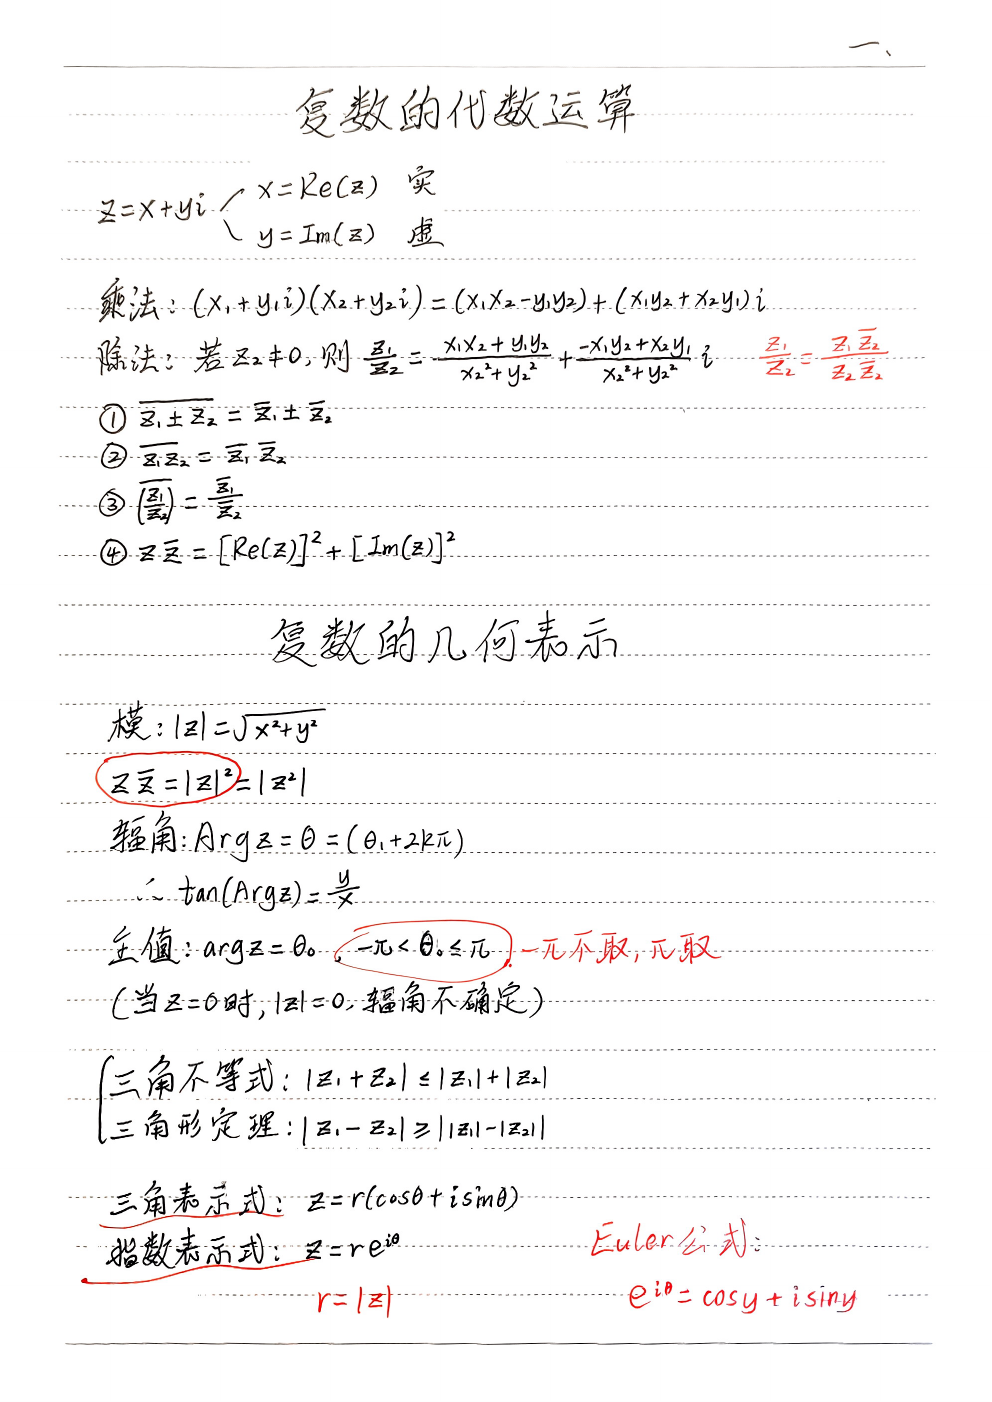 一、
复数的代数运算
z=x+yi x=Re(z) 实
y=Im(z) 虚
乘法：(x₁+y₁i)(x₂+y₂i)=(x₁x₂-y₁y₂)+(x₁y₂+x₂y₁)i
除法：若z₂≠0,则 z₁/z₂ = (x₁x₂+y₁y₂)/(x₂²+y₂²) + (-x₁y₂+x₂y₁)/(x₂²+y₂²) i z₁/z₂ = z₁z̅₂/z₂z̅₂
① \overline{z₁±z₂} = z̅₁±z̅₂
② \overline{z₁z₂} = z̅₁ z̅₂
③ \overline{(z₁/z₂)} = z̅₁/z̅₂
④ z z̅ = [Re(z)]²+[Im(z)]²
复数的几何表示
模：|z|=√(x²+y²)
z z̅=|z|²=|z²|
辐角：Arg z=θ=(θ₁+2kπ)
∴ tan(Arg z)=y/x
主值：arg z=θ₀,-π<θ₀≤π, -π不取,π取
(当z=0时,|z|=0,辐角不确定)
三角不等式：|z₁+z₂|≤|z₁|+|z₂|
三角形定理：|z₁-z₂|≥||z₁|-|z₂||
三角表示式：z=r(cosθ+isinθ)
指数表示式：z=re^{iθ} Euler公式：
r=|z| e^{iθ}=cosy+isiny